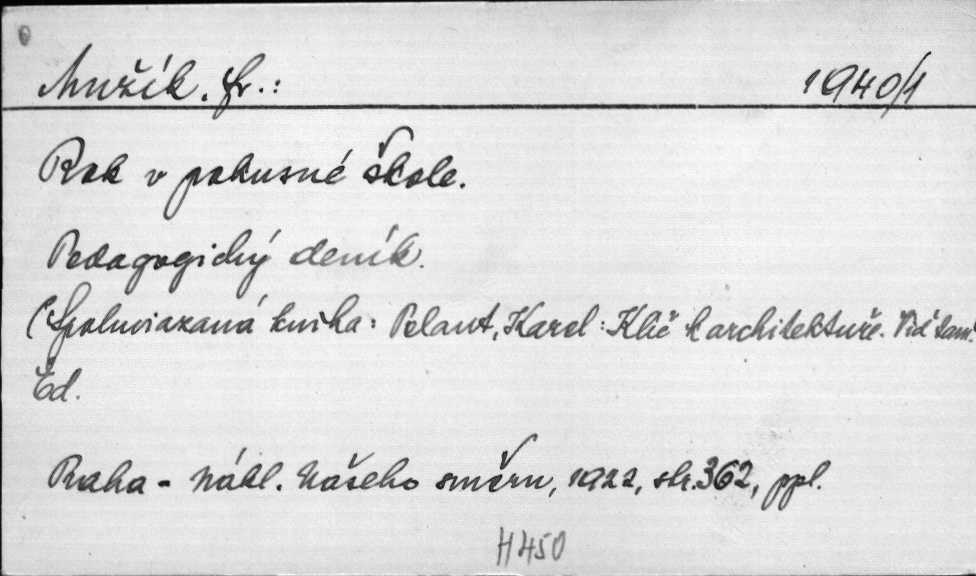 Mužík, Fr.: 1940/1
Rok v pokusné škole.
Pedagogický deník.
(Spoluviazaná kniha: Pelant, Karel: Klíč k architektuře. Viď tam.
Čd.
Praha - Nákl. Našeho směru, 1922, str. 362, ppl.
H 450